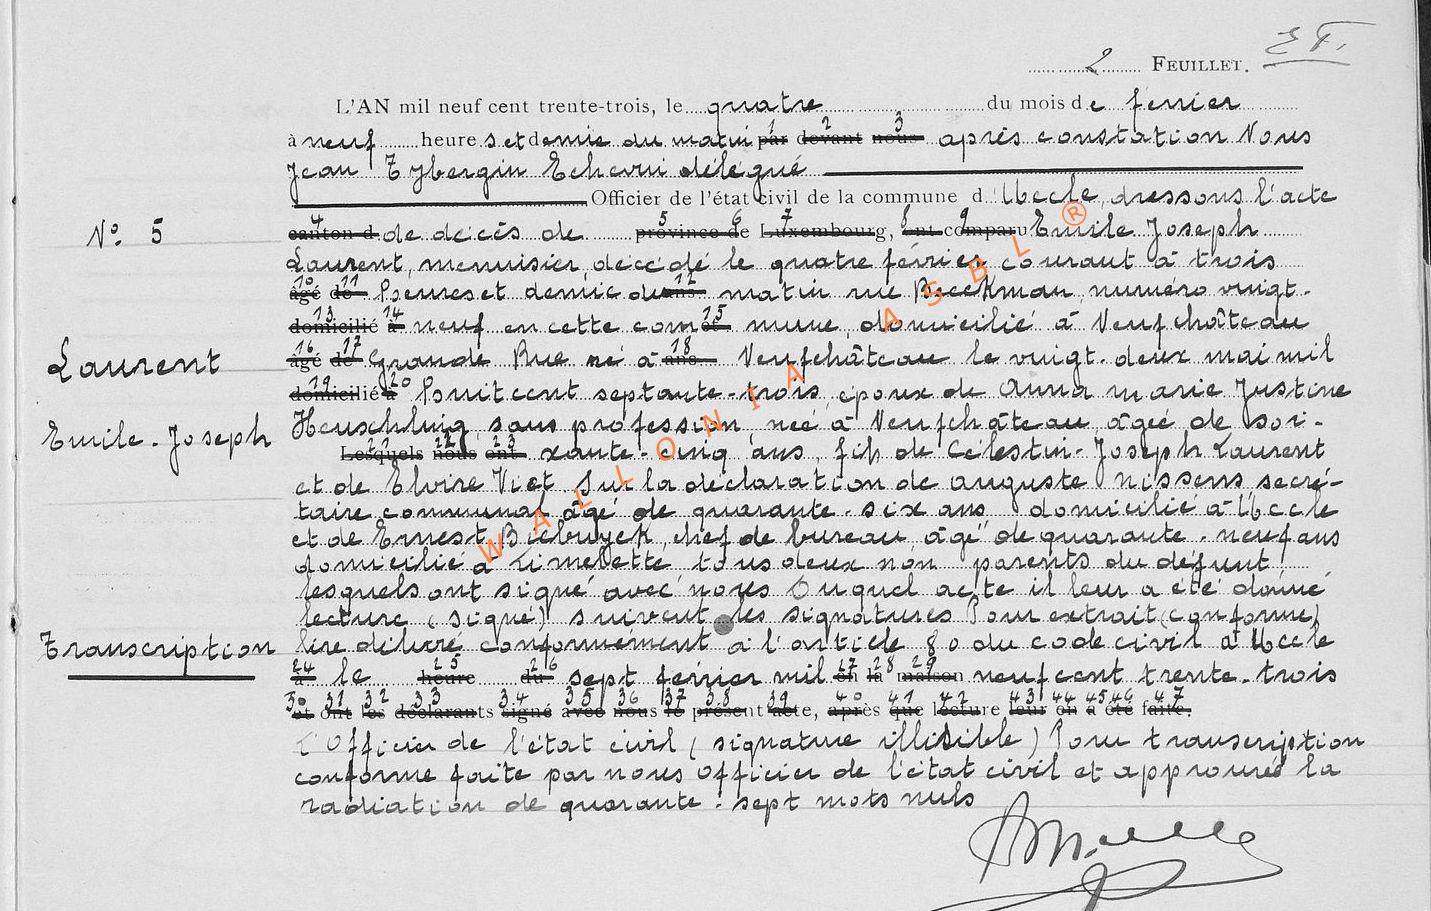 2 FEUILLET.
L'AN mil neuf cent trente-trois, le quatre du mois de fevrier
à neuf heures et demie du matin par 1 devant 2 nous 3 après constation Nous
Jean Tybergin Echevin délégué
Officier de l'état civil de la commune d'Uccle, dressons l'acte
N° 5
canton d 4 de décès de province 5 de 6 Luxembourg 7, ont 8 comparu 9 Emile Joseph
Laurent, menuisier, décédé le quatre février courant à trois
âgé 10 de 11 heures et demie du ans 12 matin rue Beeckman, numéro vingt-
domicilié 13 à 14 neuf en cette com et 15 mune, domicilié à Neufchâteau
Laurent
âgé 16 de 17 Grande Rue né à ans 18 Neufchâteau le vingt-deux mai mil
domicilié 19 à 20 huit cent septante-trois, époux de Anna Marie Justine
Emile-Joseph
Heuschling, sans profession, née à Neufchâteau, âgée de soi-
Lesquels 21 nous 22 ont 23 xante-cinq ans, fils de Célestin-Joseph Laurent
et de Elvire Viot Sur la déclaration de Auguste Nissens secré-
taire communal âgé de quarante-six ans domicilié à Uccle
et de Ernest Biebuyck, chef de bureau, âgé de quarante-neuf ans
domicilié à Limelette tous deux non parents du défunt
lesquels ont signé avec nous Duquel acte il leur a été donné
lecture (signé) suivent les signatures Pour extrait (conforme)
Transcription
lire délivré conformément à l'article 80 du code civil à Uccle
à 24 le heure 25 du 26 sept février mil en 27 la 28 maison 29 neuf cent trente-trois
et 30 ont 31 les 32 déclarants 33 signé 34 avec 35 nous 36 le 37 présent 38 acte 39, après 40 que 41 lecture 42 leur 43 en 44 a 45 été 46 faite 47.
L'Officier de l'état civil (signature illisible) Pour transcription
conforme faite par nous Officier de l'état civil et approuvés la
radiation de quarante-sept mots nuls
WALLONIA ASBL ®